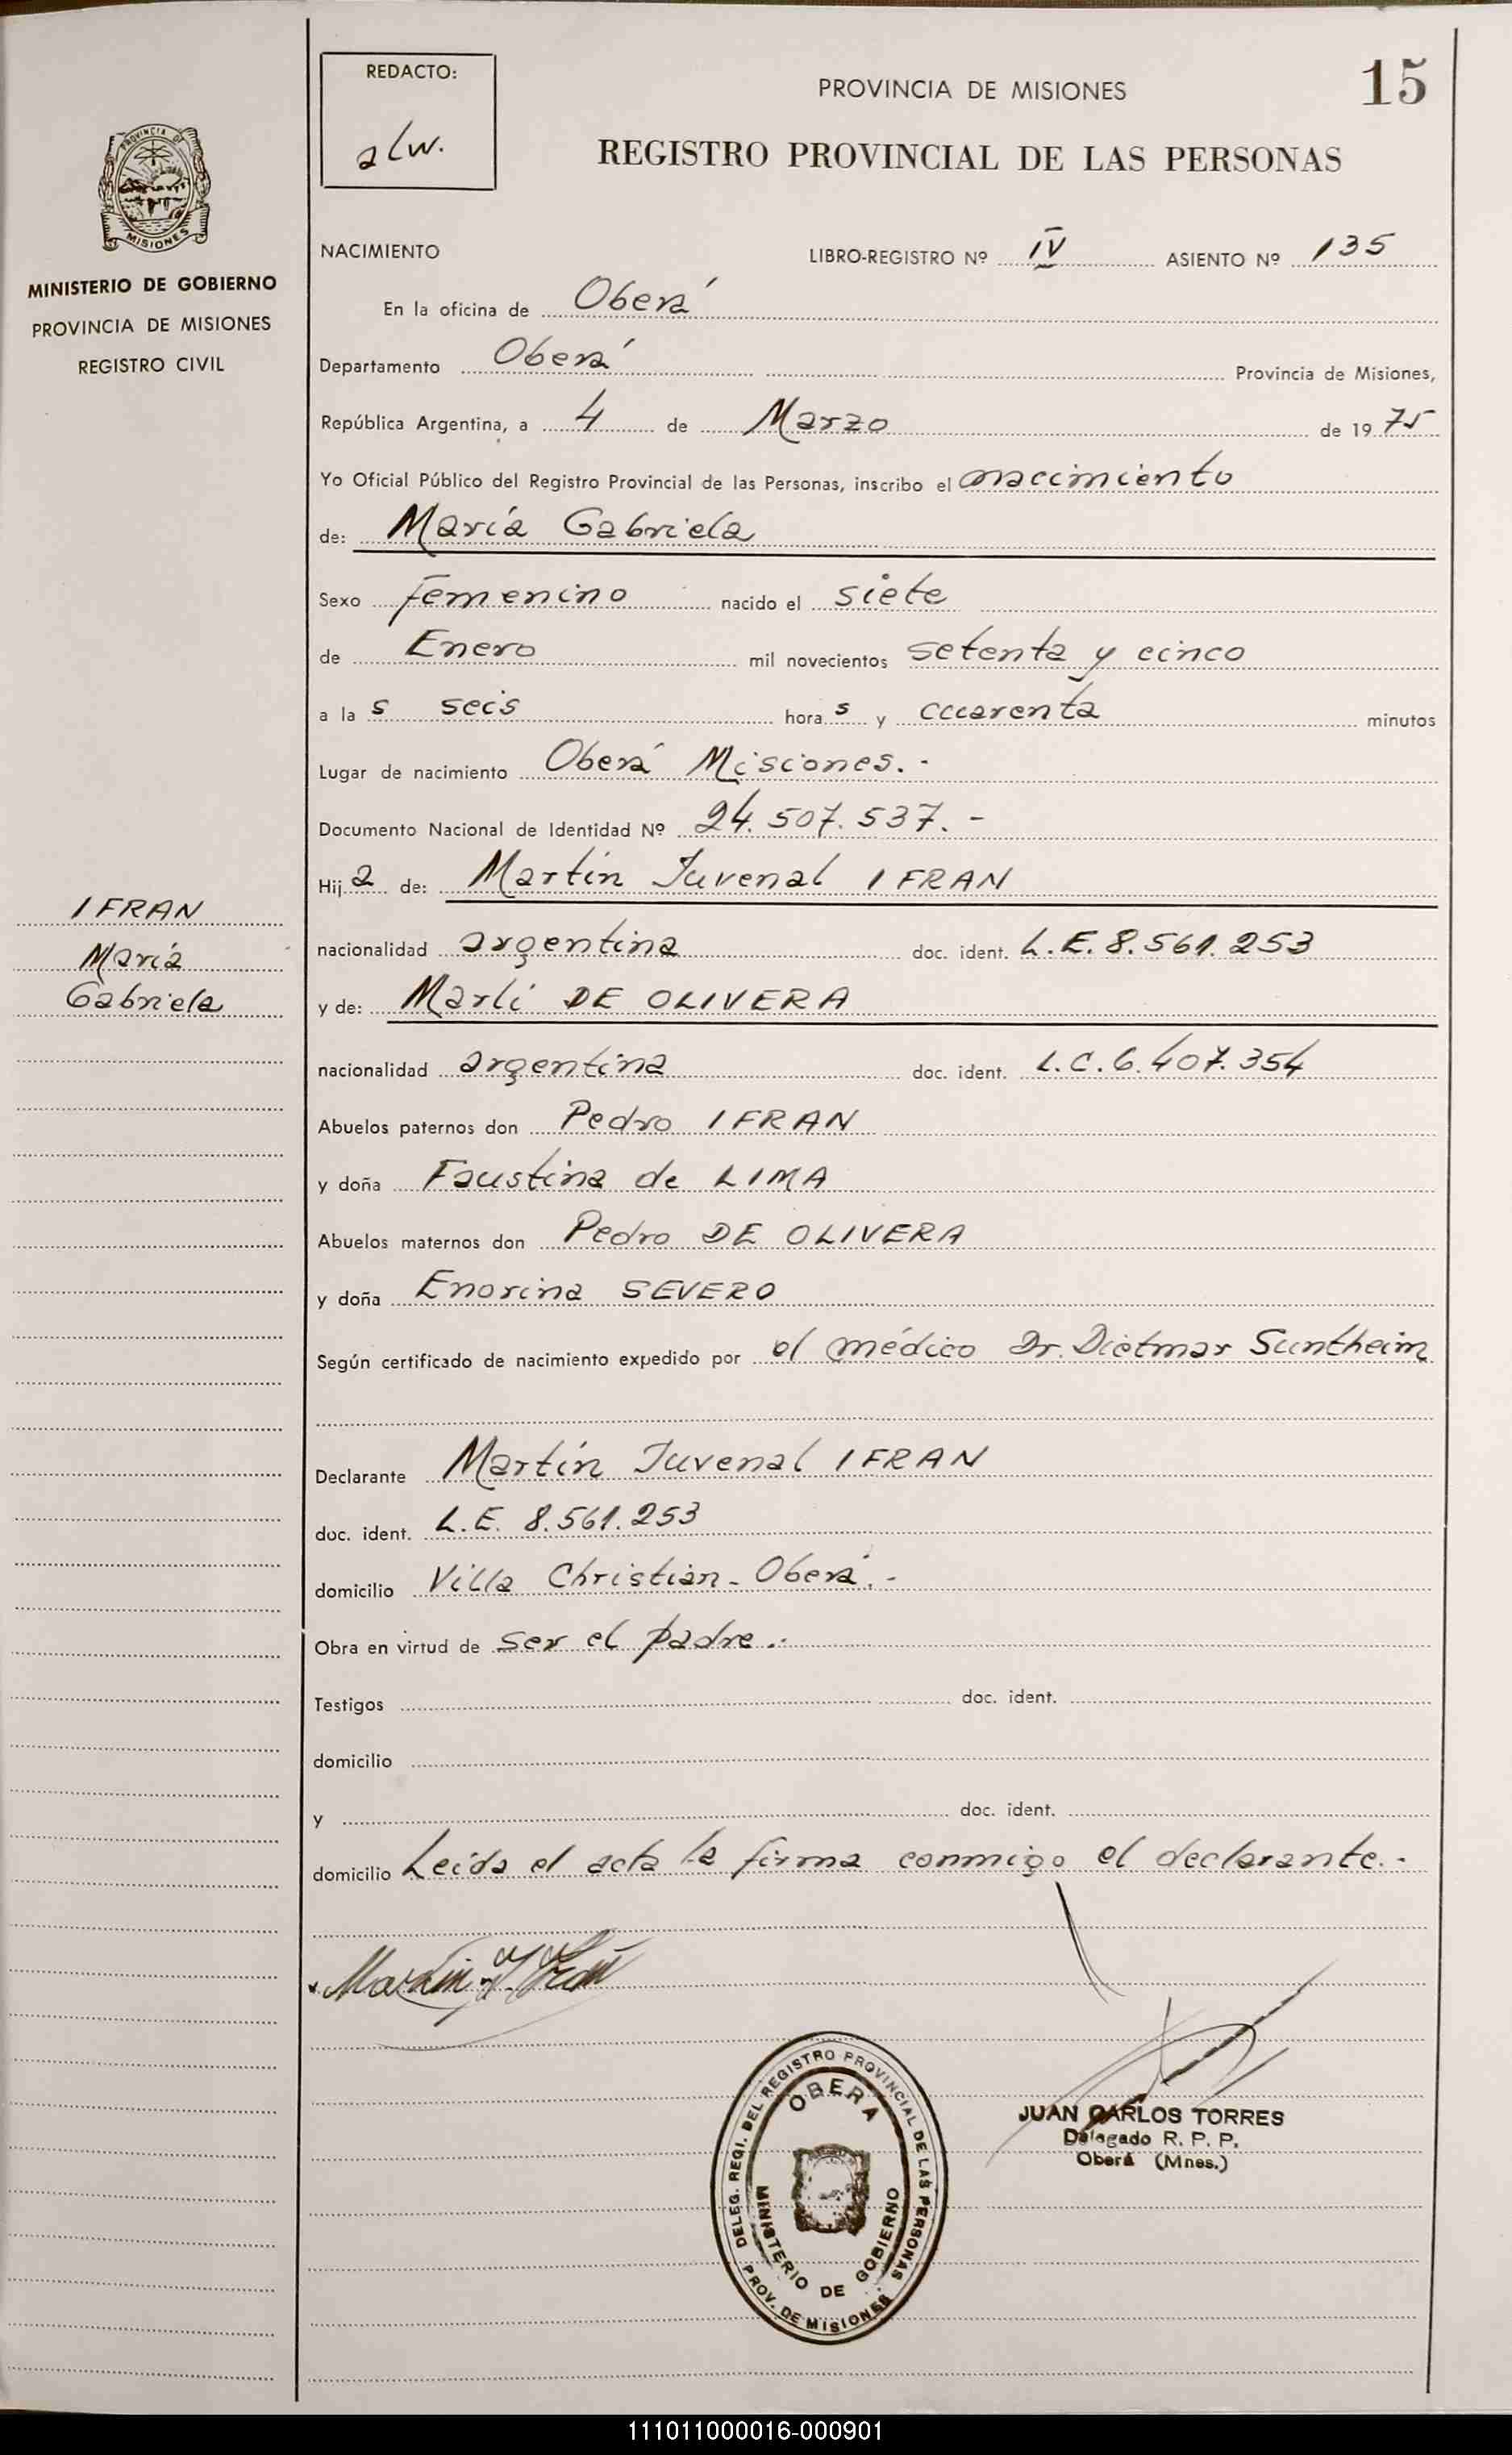 REDACTO:
alw.
PROVINCIA DE MISIONES
15
REGISTRO PROVINCIAL DE LAS PERSONAS
PROVINCIA DE
MISIONES
MINISTERIO DE GOBIERNO
PROVINCIA DE MISIONES
REGISTRO CIVIL
NACIMIENTO LIBRO-REGISTRO Nº IV ASIENTO Nº 135
En la oficina de Oberá
Departamento Oberá Provincia de Misiones,
República Argentina, a 4 de Marzo de 1975
Yo Oficial Público del Registro Provincial de las Personas, inscribo el nacimiento
de: María Gabriela
Sexo femenino nacido el siete
de Enero mil novecientos setenta y cinco
a la s seis hora s y cuarenta minutos
Lugar de nacimiento Oberá Misiones.-
Documento Nacional de Identidad Nº 24.507.537.-
Hij a de: Martín Juvenal IFRAN
nacionalidad argentina doc. ident. L.E. 8.561.253
y de: Marli DE OLIVERA
nacionalidad argentina doc. ident. L.C. 6.407.354
Abuelos paternos don Pedro IFRAN
y doña Faustina de LIMA
Abuelos maternos don Pedro DE OLIVERA
y doña Enorina SEVERO
Según certificado de nacimiento expedido por el médico Dr. Dietmar Suntheim
Declarante Martín Juvenal IFRAN
doc. ident. L.E. 8.561.253
domicilio Villa Christian - Oberá.-
Obra en virtud de ser el padre.-
Testigos doc. ident.
domicilio
y doc. ident.
domicilio Leída el acta la firma conmigo el declarante.-
IFRAN
María
Gabriela
Martin J. Ifran
DELEG. REGI. DEL REGISTRO PROVINCIAL DE LAS PERSONAS
PROV. DE MISIONES
OBERA
MINISTERIO DE GOBIERNO
JUAN CARLOS TORRES
Delegado R. P. P.
Oberá (Mnes.)
111011000016-000901